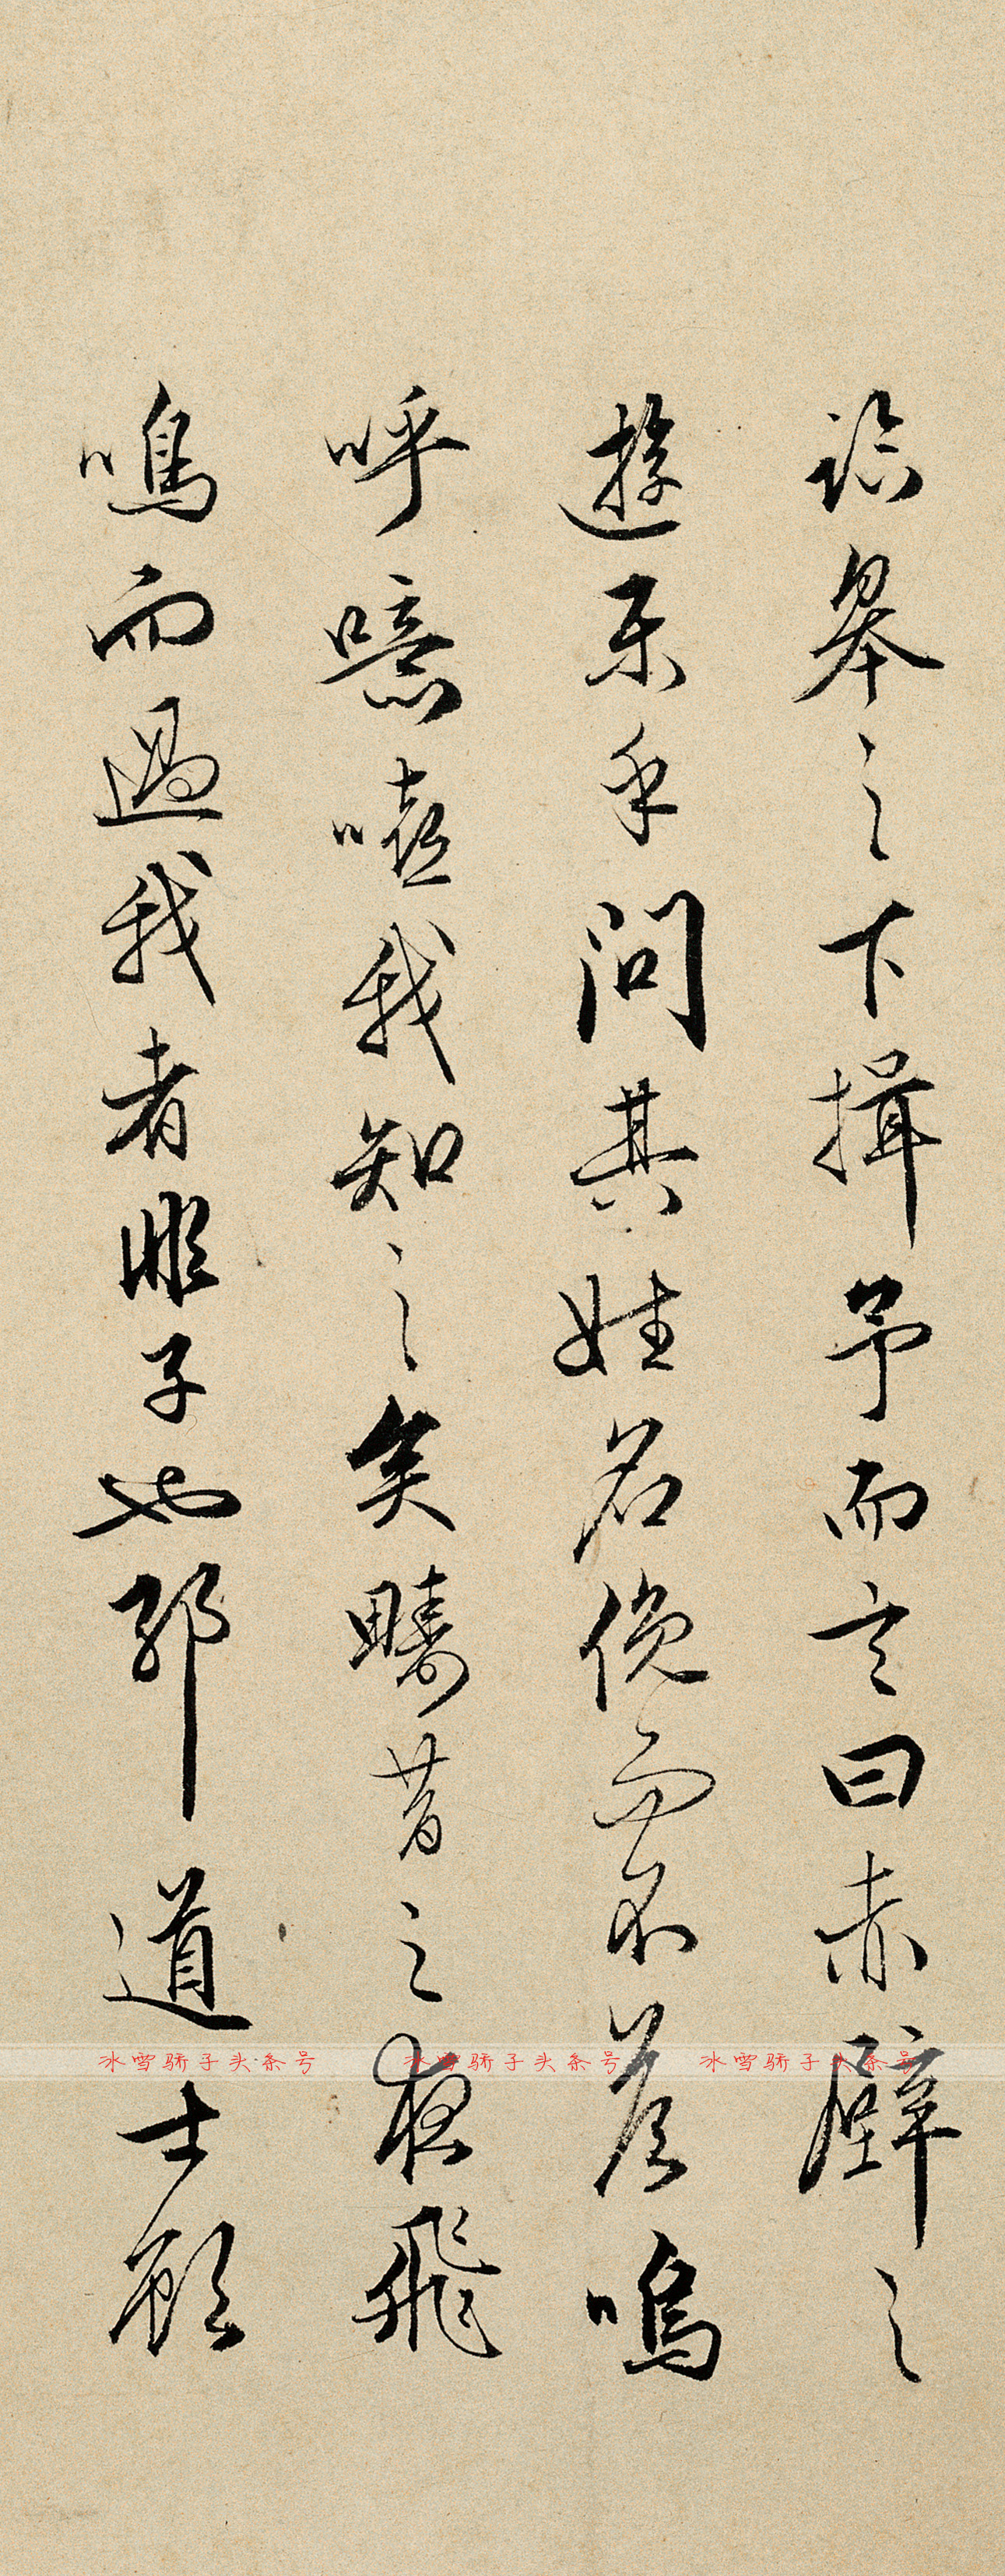 臨皋之下揖予而言曰赤壁之
遊樂乎問其姓名俛而不答嗚
呼噫嘻我知之矣疇昔之夜飛
鳴而過我者非子也耶道士顧
冰雪骄子头条号 冰雪骄子头条号 冰雪骄子头条号